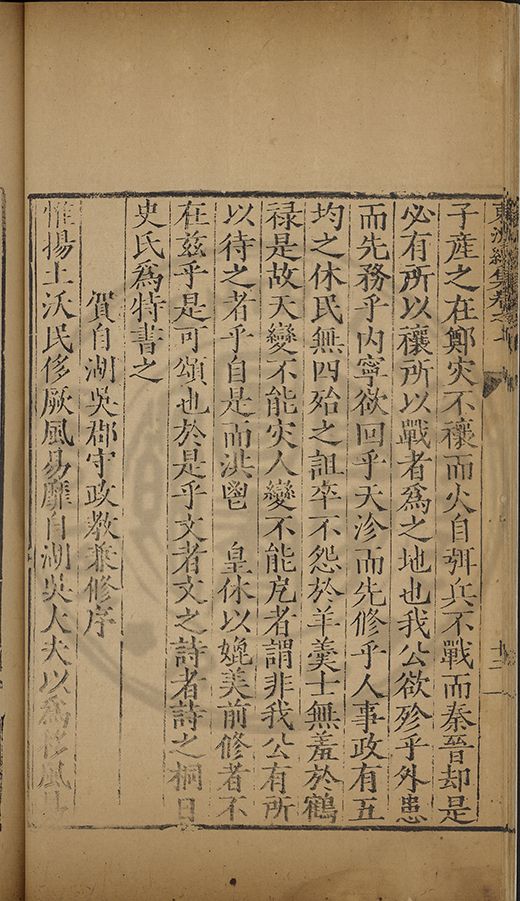 子産之在鄭灾不禳而火自弭兵不戰而秦晉却是
必有所以禳所以戰者為之地也我公欲殄乎外患
而先務乎内寧欲回乎天沴而先修乎人事政有五
均之休民無四殆之詛卒不怨於羊羮士無羞於鶴
禄是故天變不能灾人變不能危者謂非我公有所
以待之者乎自是而洪鬯　皇休以媲美前修者不
在兹乎是可頌也於是乎文者文之詩者詩之桐曰
史氏為特書之
賀自湖吳郡守政教兼修序
惟揚土沃民侈厥風易靡自湖吳大夫以為侈風